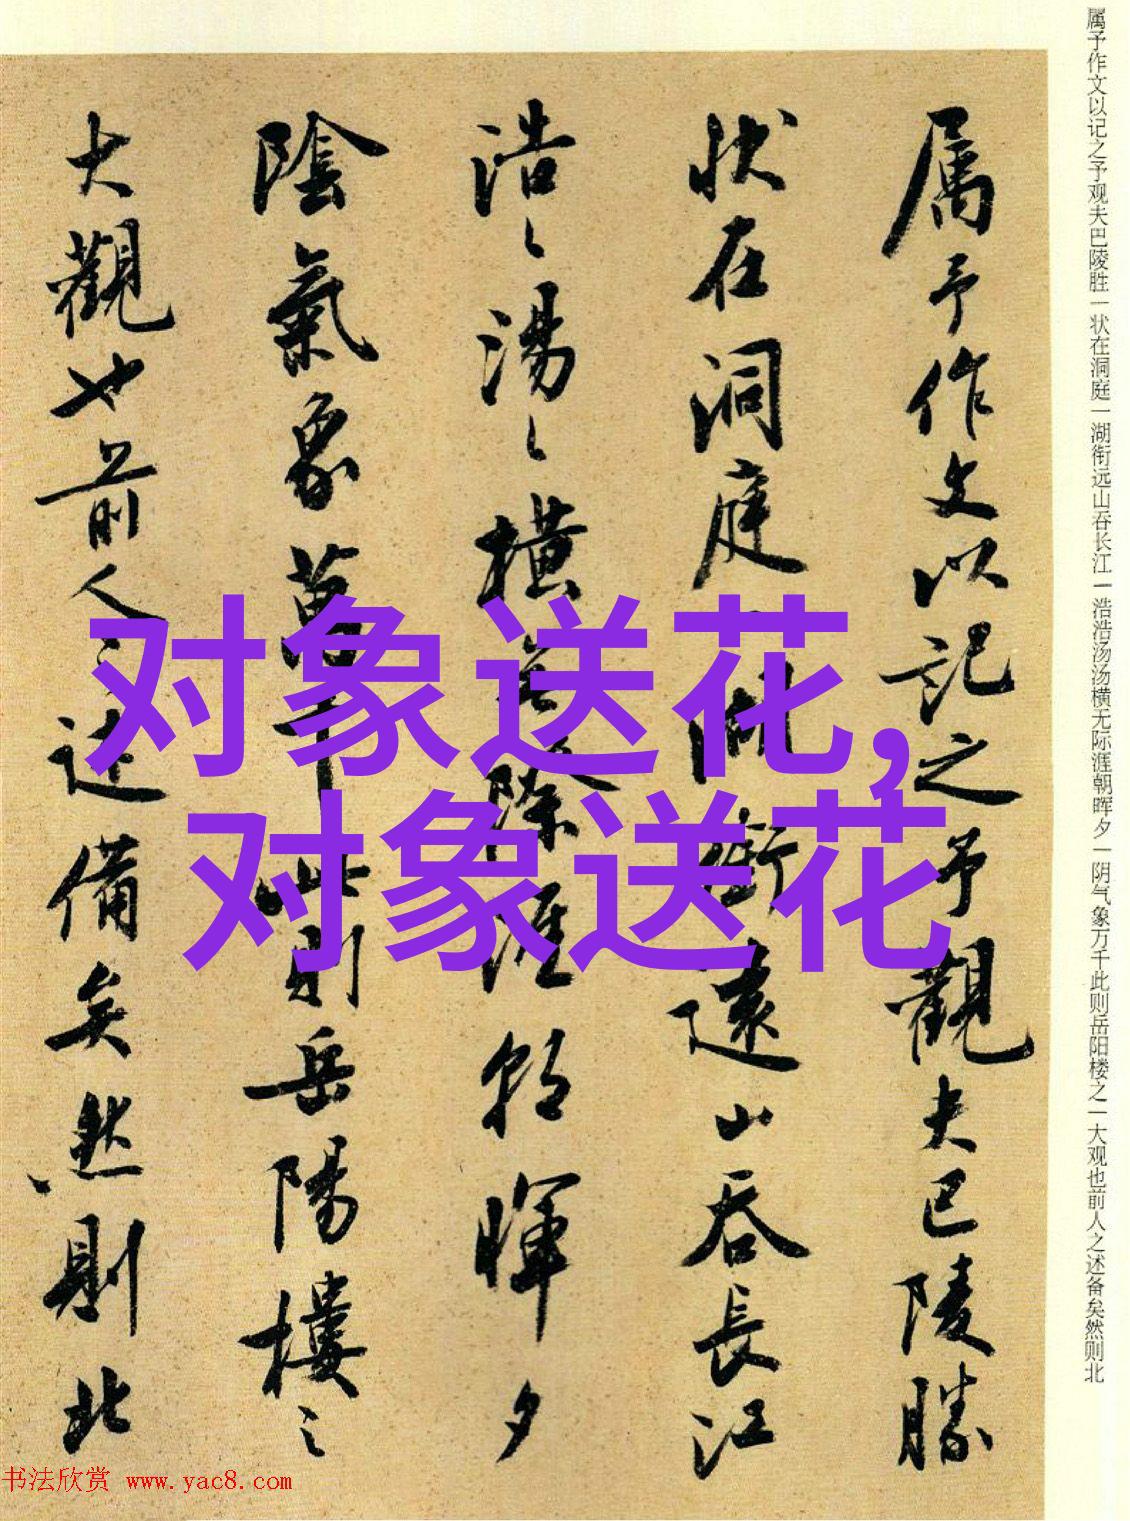 属予作文以记之予观夫巴陵胜一状在洞庭一湖衔远山吞长江一浩浩汤汤横无际涯朝晖夕一阴气象万千此则岳阳楼之一大观也前人之述备矣然则北
属予作文以記之予觀夫巴陵勝
状在洞庭湖銜遠山吞長江
浩〻湯〻橫無際涯朝暉夕
陰氣象萬千此則岳陽樓之
大觀也前人之述備矣然則北
对象送花,
对象送花
书法欣赏 www.yac8.com